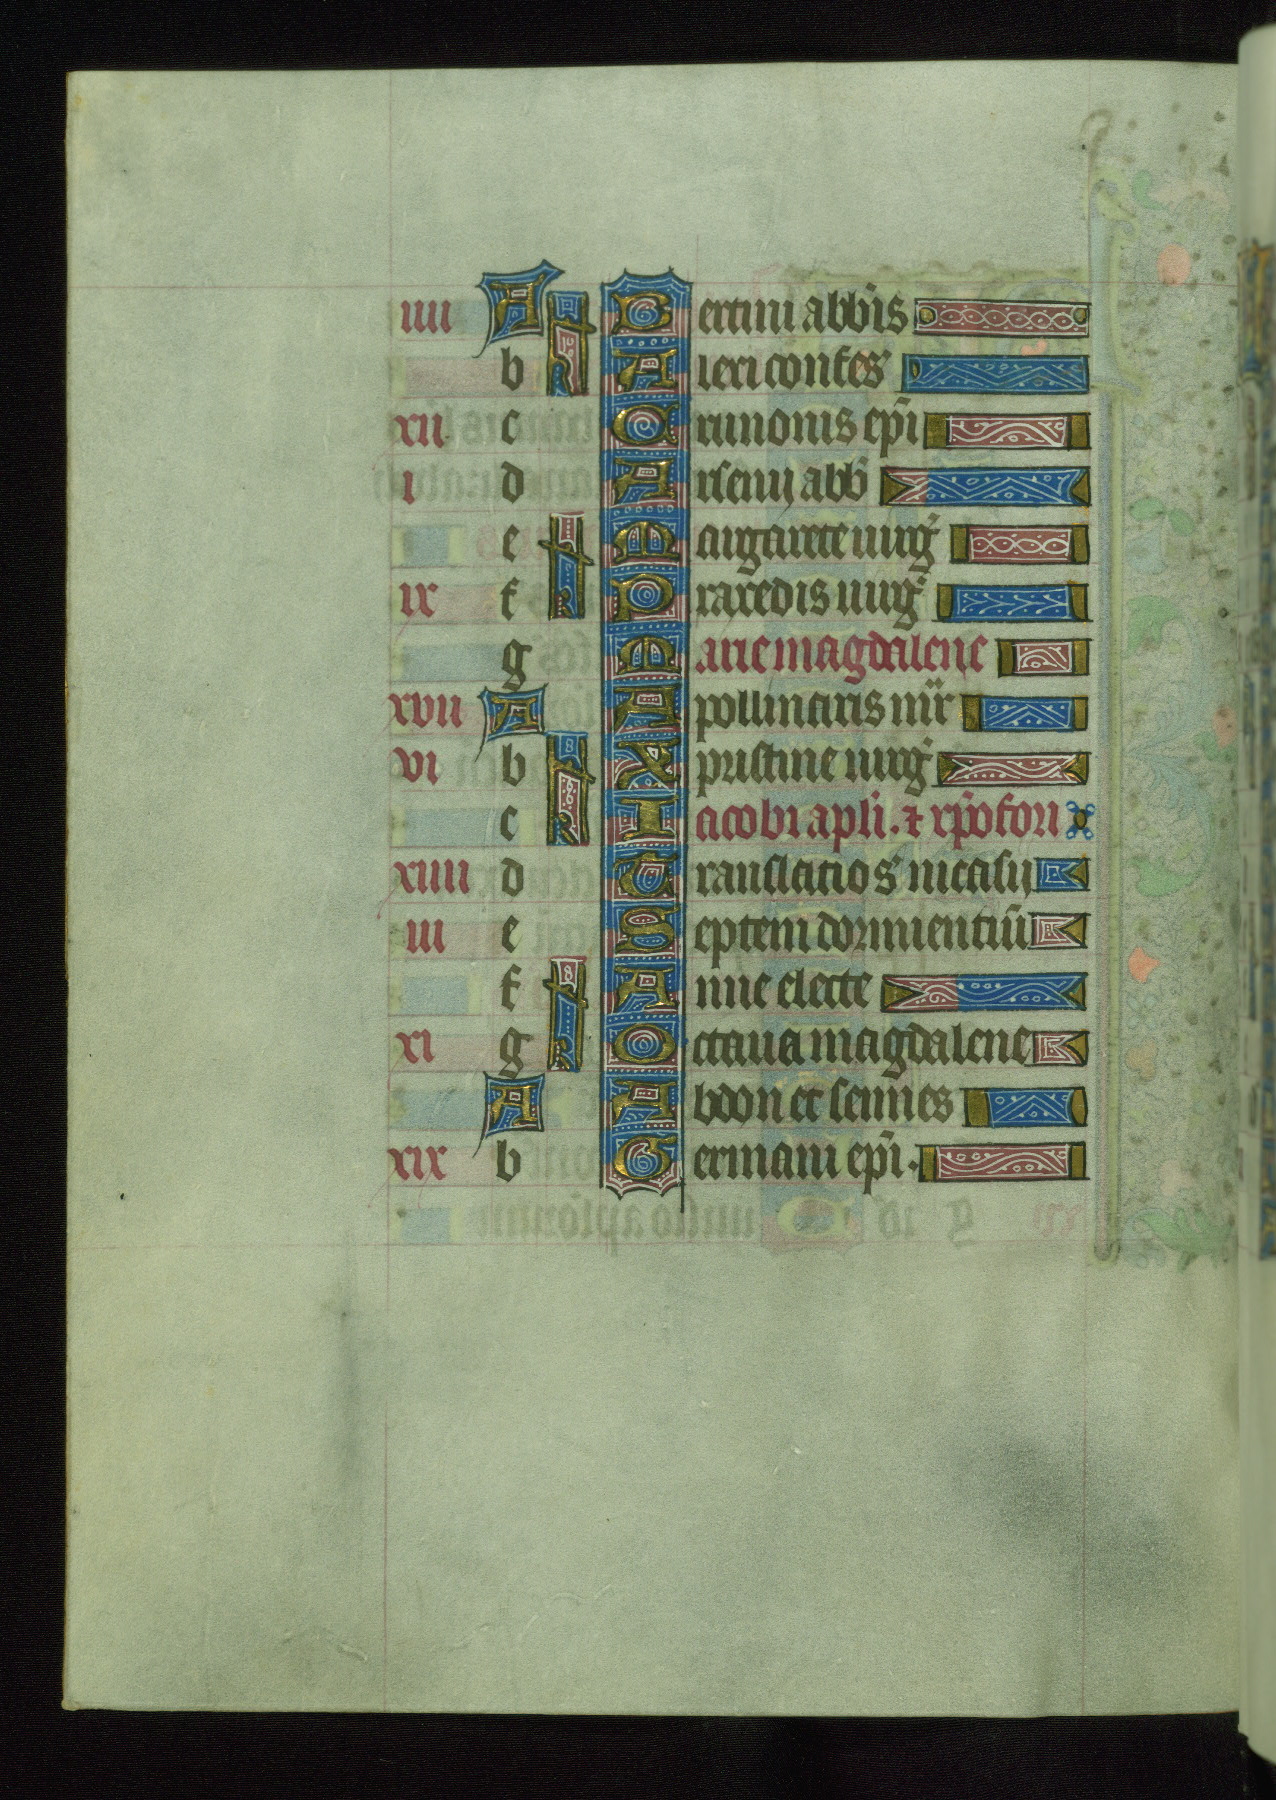 iiii A k Bertini abbis
b Alexi confes
xii c Arnnonis epi
i d Arsenij abb
e k Margarete uirg
ix f Praxedis uirg
g Marie magdalene
xvii A Appollinaris mr
vi b k Xpristine uirg
c Iacobi apli. ⁊ xpofori
xiiii d Translatio s nicasij
iii e Septem dormientiu
f k Anne electe
xi g Octaua magdalene
A Abdon et sennes
xix b Germani epi.